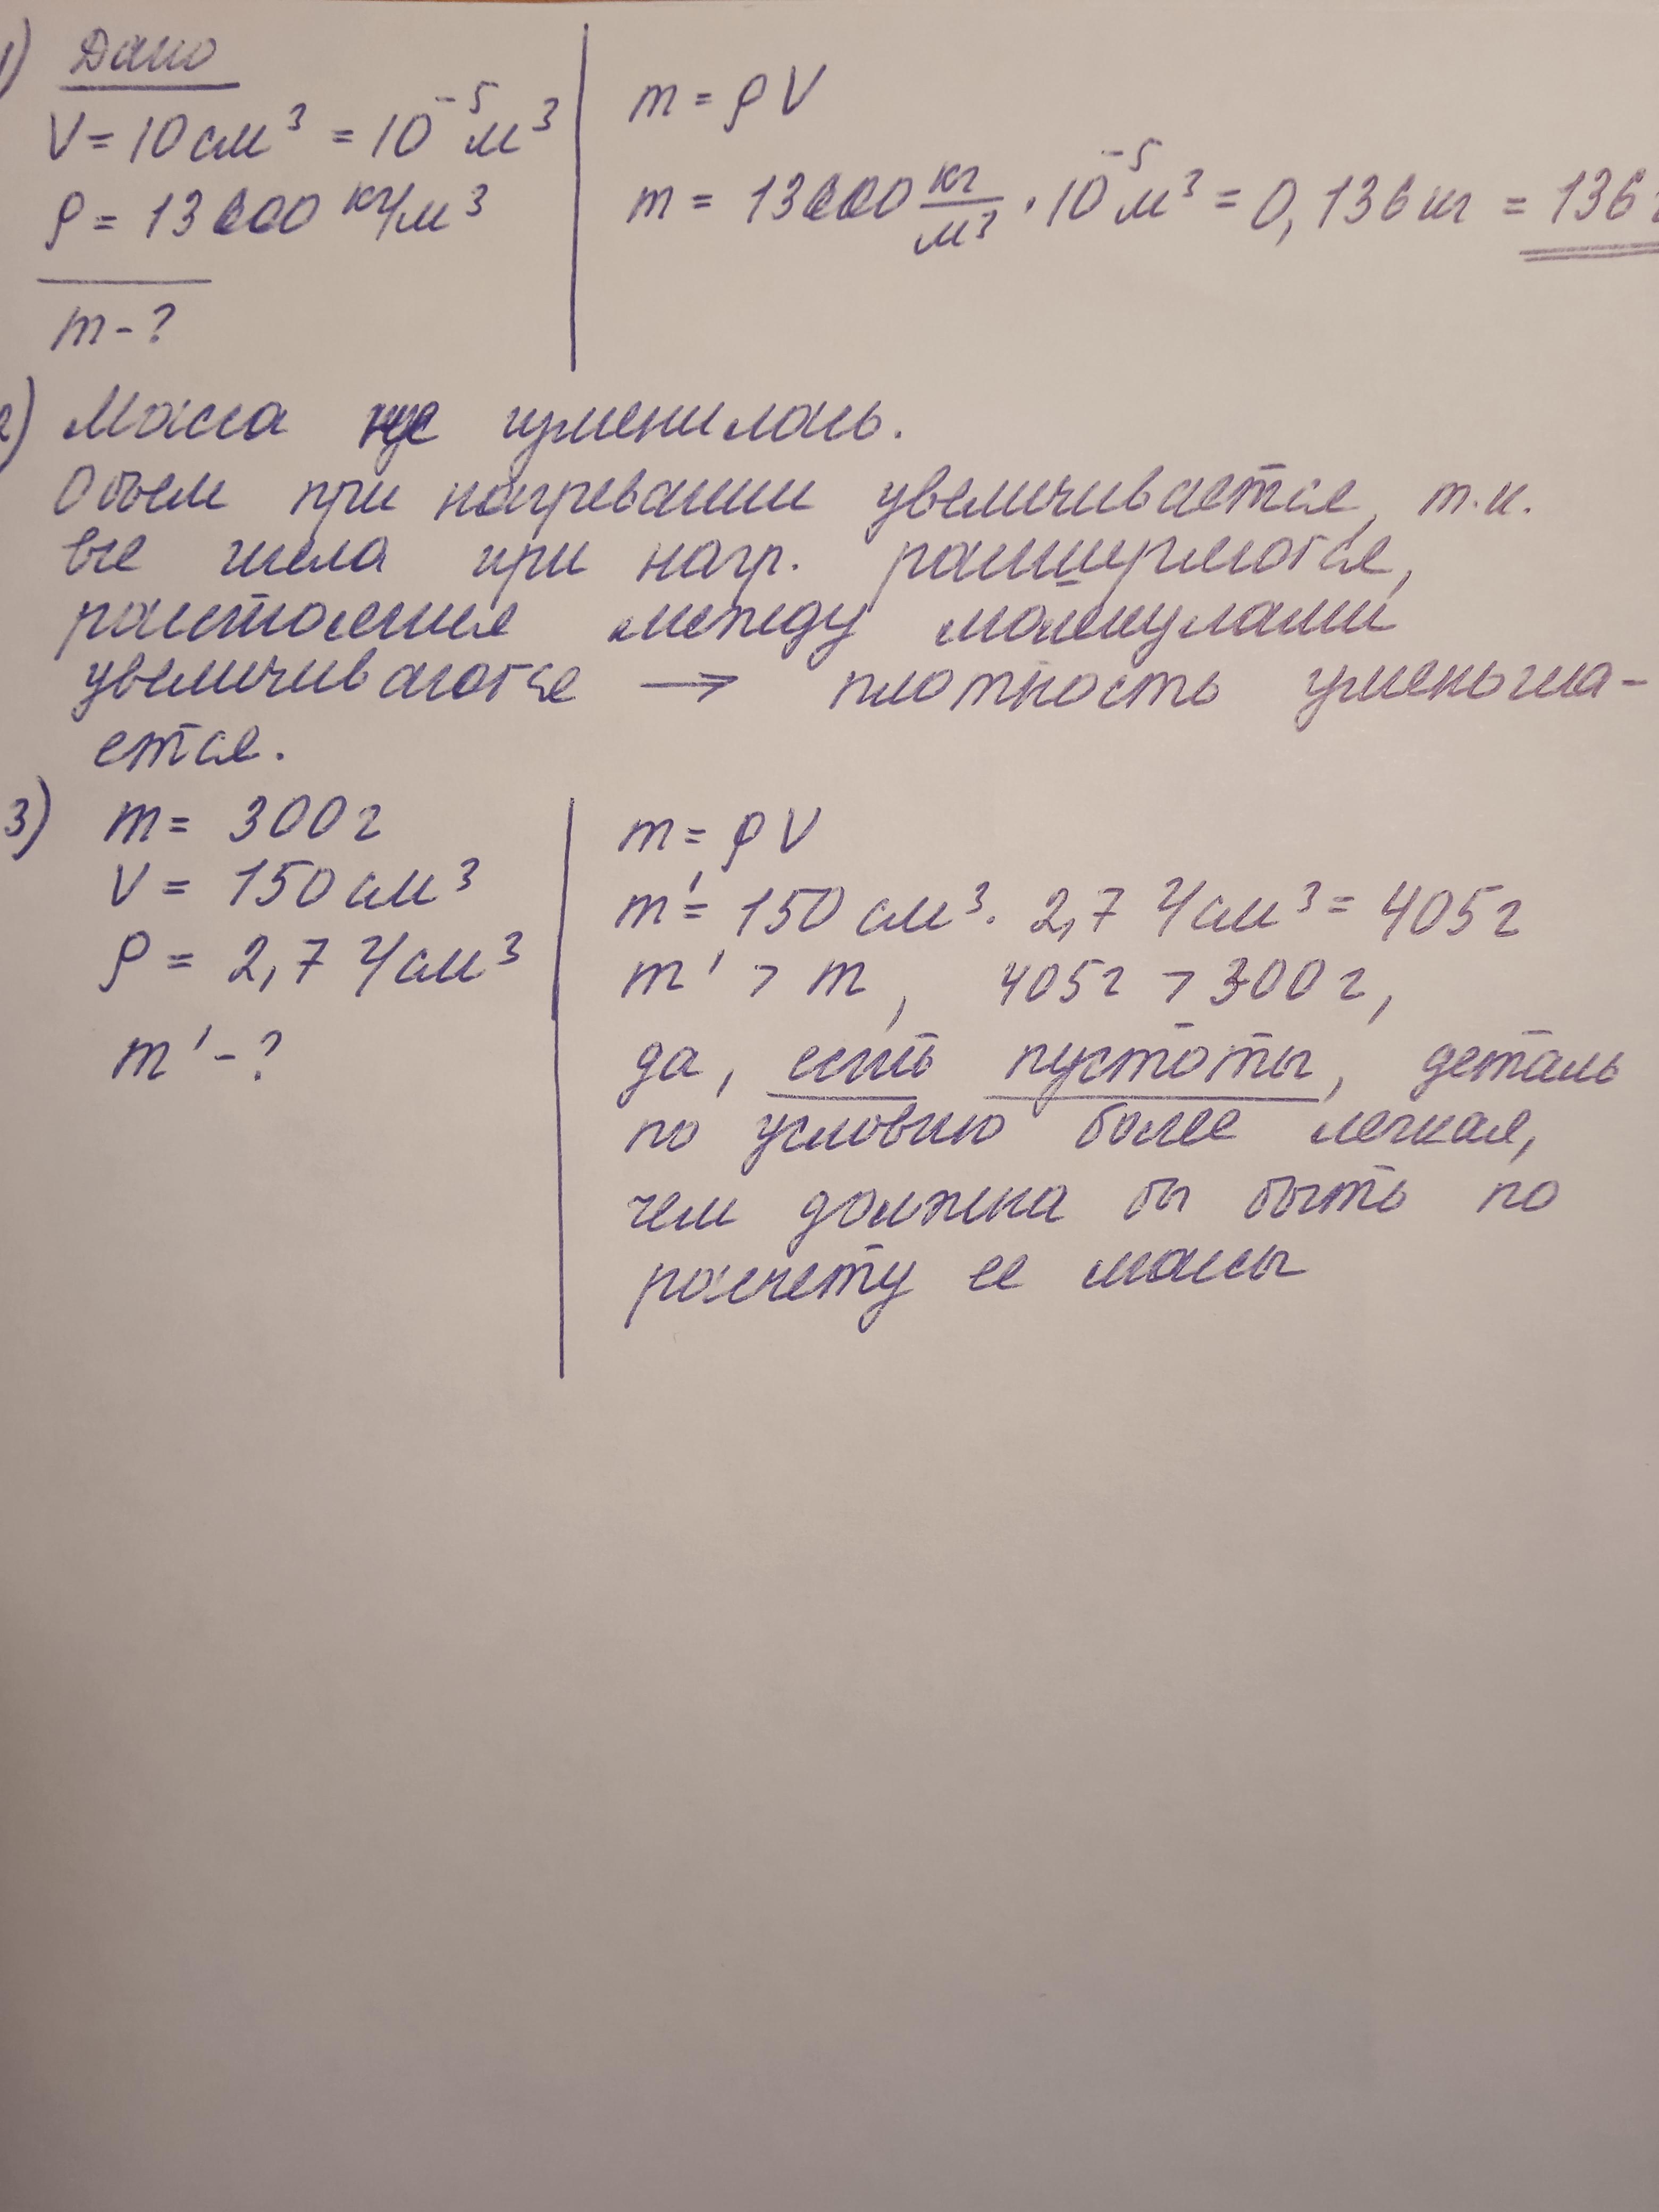 1) Дано
V = 10 см³ = 10⁻⁵ м³
ρ = 13600 кг/м³
m - ?
m = ρV
m = 13600 кг/м³ · 10⁻⁵ м³ = 0,136 кг = 136 г
2) Масса не изменилась.
Объем при нагревании увеличивается, т.к.
все тела при нагр. расширяются,
расстояния между молекулами
увеличиваются → плотность уменьша-
ется.
3) m = 300 г
V = 150 см³
ρ = 2,7 г/см³
m' - ?
m = ρV
m' = 150 см³ · 2,7 г/см³ = 405 г
m' > m, 405 г > 300 г,
да, есть пустоты, деталь
по условию более легкая,
чем должна бы быть по
расчету ее массы